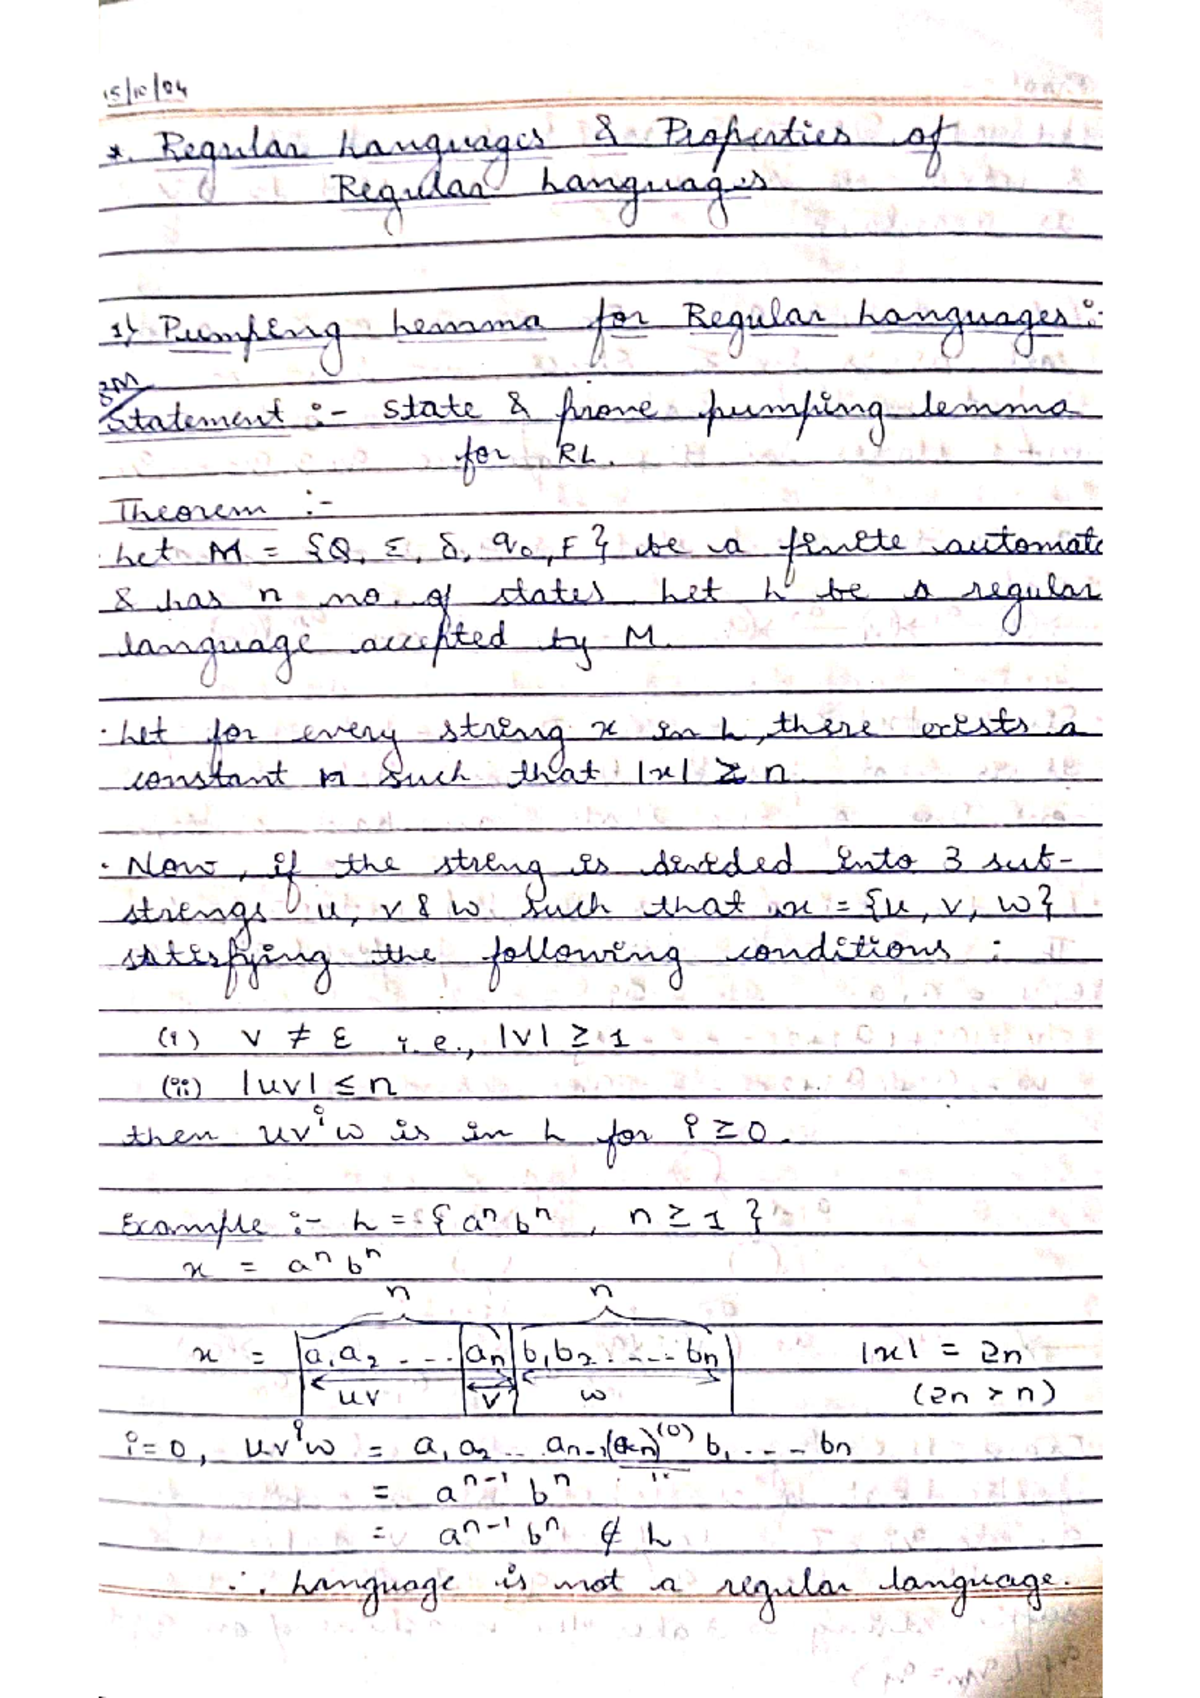 15/10/04
*. Regular Languages & Properties of
Regular Languages
1) Pumping Lemma for Regular Languages :-
8M
Statement :- State & prove pumping lemma
for RL.
Theorem :-
Let M = {Q, Σ, δ, q₀, F} be a finite automata
& has n no. of states Let L be a regular
language accepted by M.
· Let for every string x in L, there exists a
constant n such that |x| ≥ n
· Now, if the string is divided into 3 sub-
strings u, v & w such that x = {u, v, w}
satisfying the following conditions :
(i) v ≠ ε i.e., |v| ≥ 1
(ii) |uv| ≤ n
then uvⁱw is in L for i ≥ 0.
Example :- L = { aⁿ bⁿ , n ≥ 1 }
x = aⁿ bⁿ
n n
x = a₁ a₂ ... aₙ b₁ b₂ ..... bₙ |x| = 2n
uv v w (2n > n)
i=0, uvⁱw = a₁ a₂ ... aₙ₋₁ (aₙ)⁽⁰⁾ b₁ .... bₙ
= aⁿ⁻¹ bⁿ
= aⁿ⁻¹ bⁿ ∉ L
∴ Language is not a regular language.